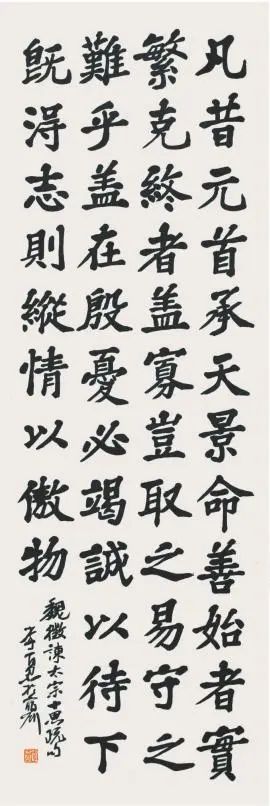 凡昔元首承天景命善始者實
繁克終者盖寡豈取之易守之
難乎盖在殷憂必竭誠以待下
既得志則縱情以傲物
魏徵諫太宗十思疏句